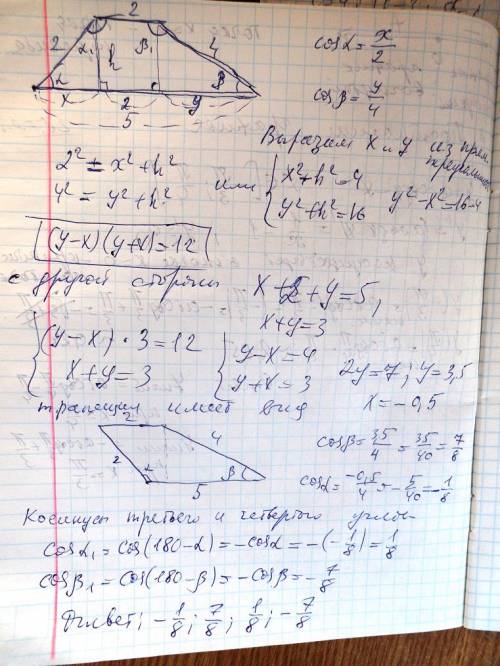 2
2 α₁ h β₁ 4
α β
x 2 y
5
cosα = x/2
cosβ = y/4
Выразим x и y из прям. треугольников
2² = x² + h²
4² = y² + h²
или { x² + h² = 4
y² + h² = 16
y² - x² = 16 - 4
(y-x)(y+x) = 12
с другой стороны x + 2 + y = 5,
x + y = 3
{ (y-x) · 3 = 12
x + y = 3
{ y - x = 4
y + x = 3
2y = 7; y = 3,5
x = -0,5
трапеция имеет вид
2
2 4
α β
5
cosβ = 3,5/4 = 35/40 = 7/8
cosα = -0,5/4 = -5/40 = -1/8
Косинусы третьего и четвертого углов
cosα₁ = cos(180-α) = -cosα = -(-1/8) = 1/8
cosβ₁ = cos(180-β) = -cosβ = -7/8
Ответ: -1/8; 7/8; 1/8; -7/8